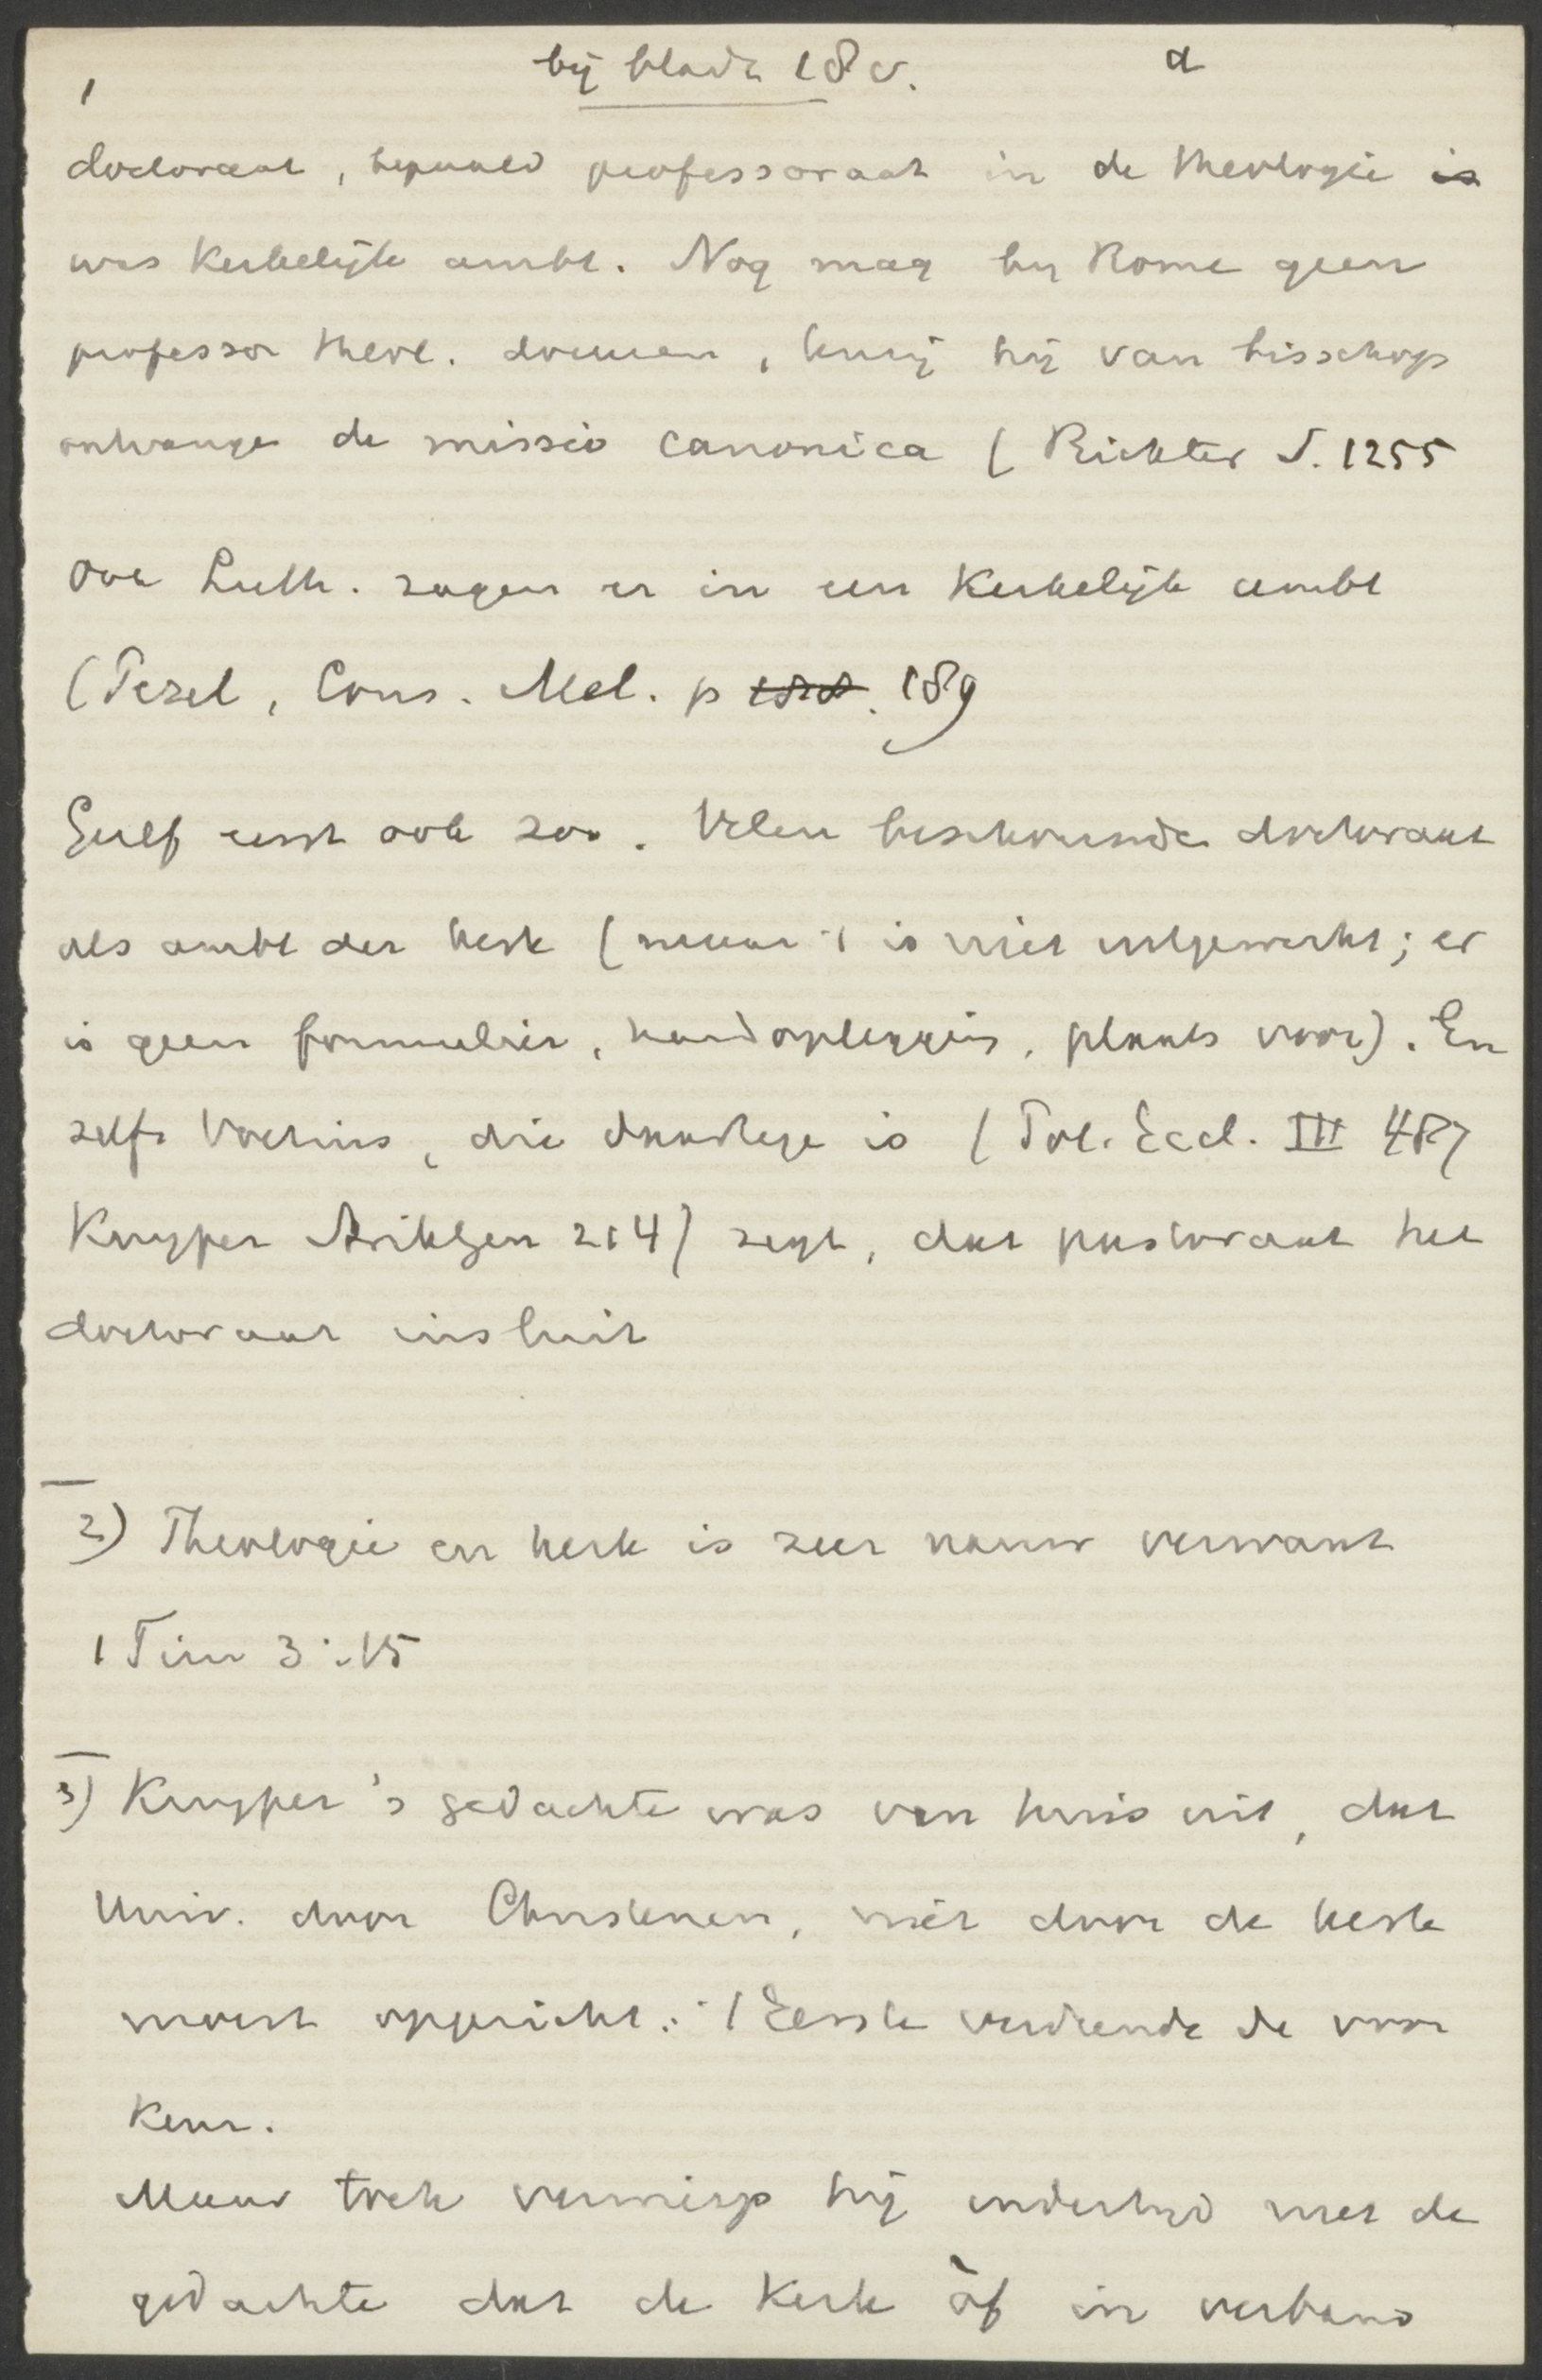 bij bladz 18 v. d
1
doctoraat, bepaald professoraat in de theologie is
was kerkelijk ambt. Nog mag bij Rome geen
professor theol. doceeren, tenzij hij van bisschop
ontvange de missio canonica (Richter S. 1255
Ook Luth. zagen er in een kerkelijk ambt
(Pezel, Cons. Mel. p 189
Geref eerst ook zoo. Velen beschouwden doctoraat
als ambt der kerk (maar 't is niet uitgewerkt; er
is geen formulier, handoplegging, plaats voor). En
zelfs Voetius, die daartegen is (Pol. Eccl. III 487
Kuyper Strikt Gen 214) zegt, dat pastoraat het
doctoraat insluit
2) Theologie en kerk is zeer nauw verwant
1 Tim 3:15
3) Kuyper's gedachte was van huis uit, dat
Univ. door Christenen, niet door de kerk
moest opgericht. 't Eerste verdiende de voor
keur.
Maar toch verwierp hij indertijd niet de
gedachte dat de Kerk òf in verband